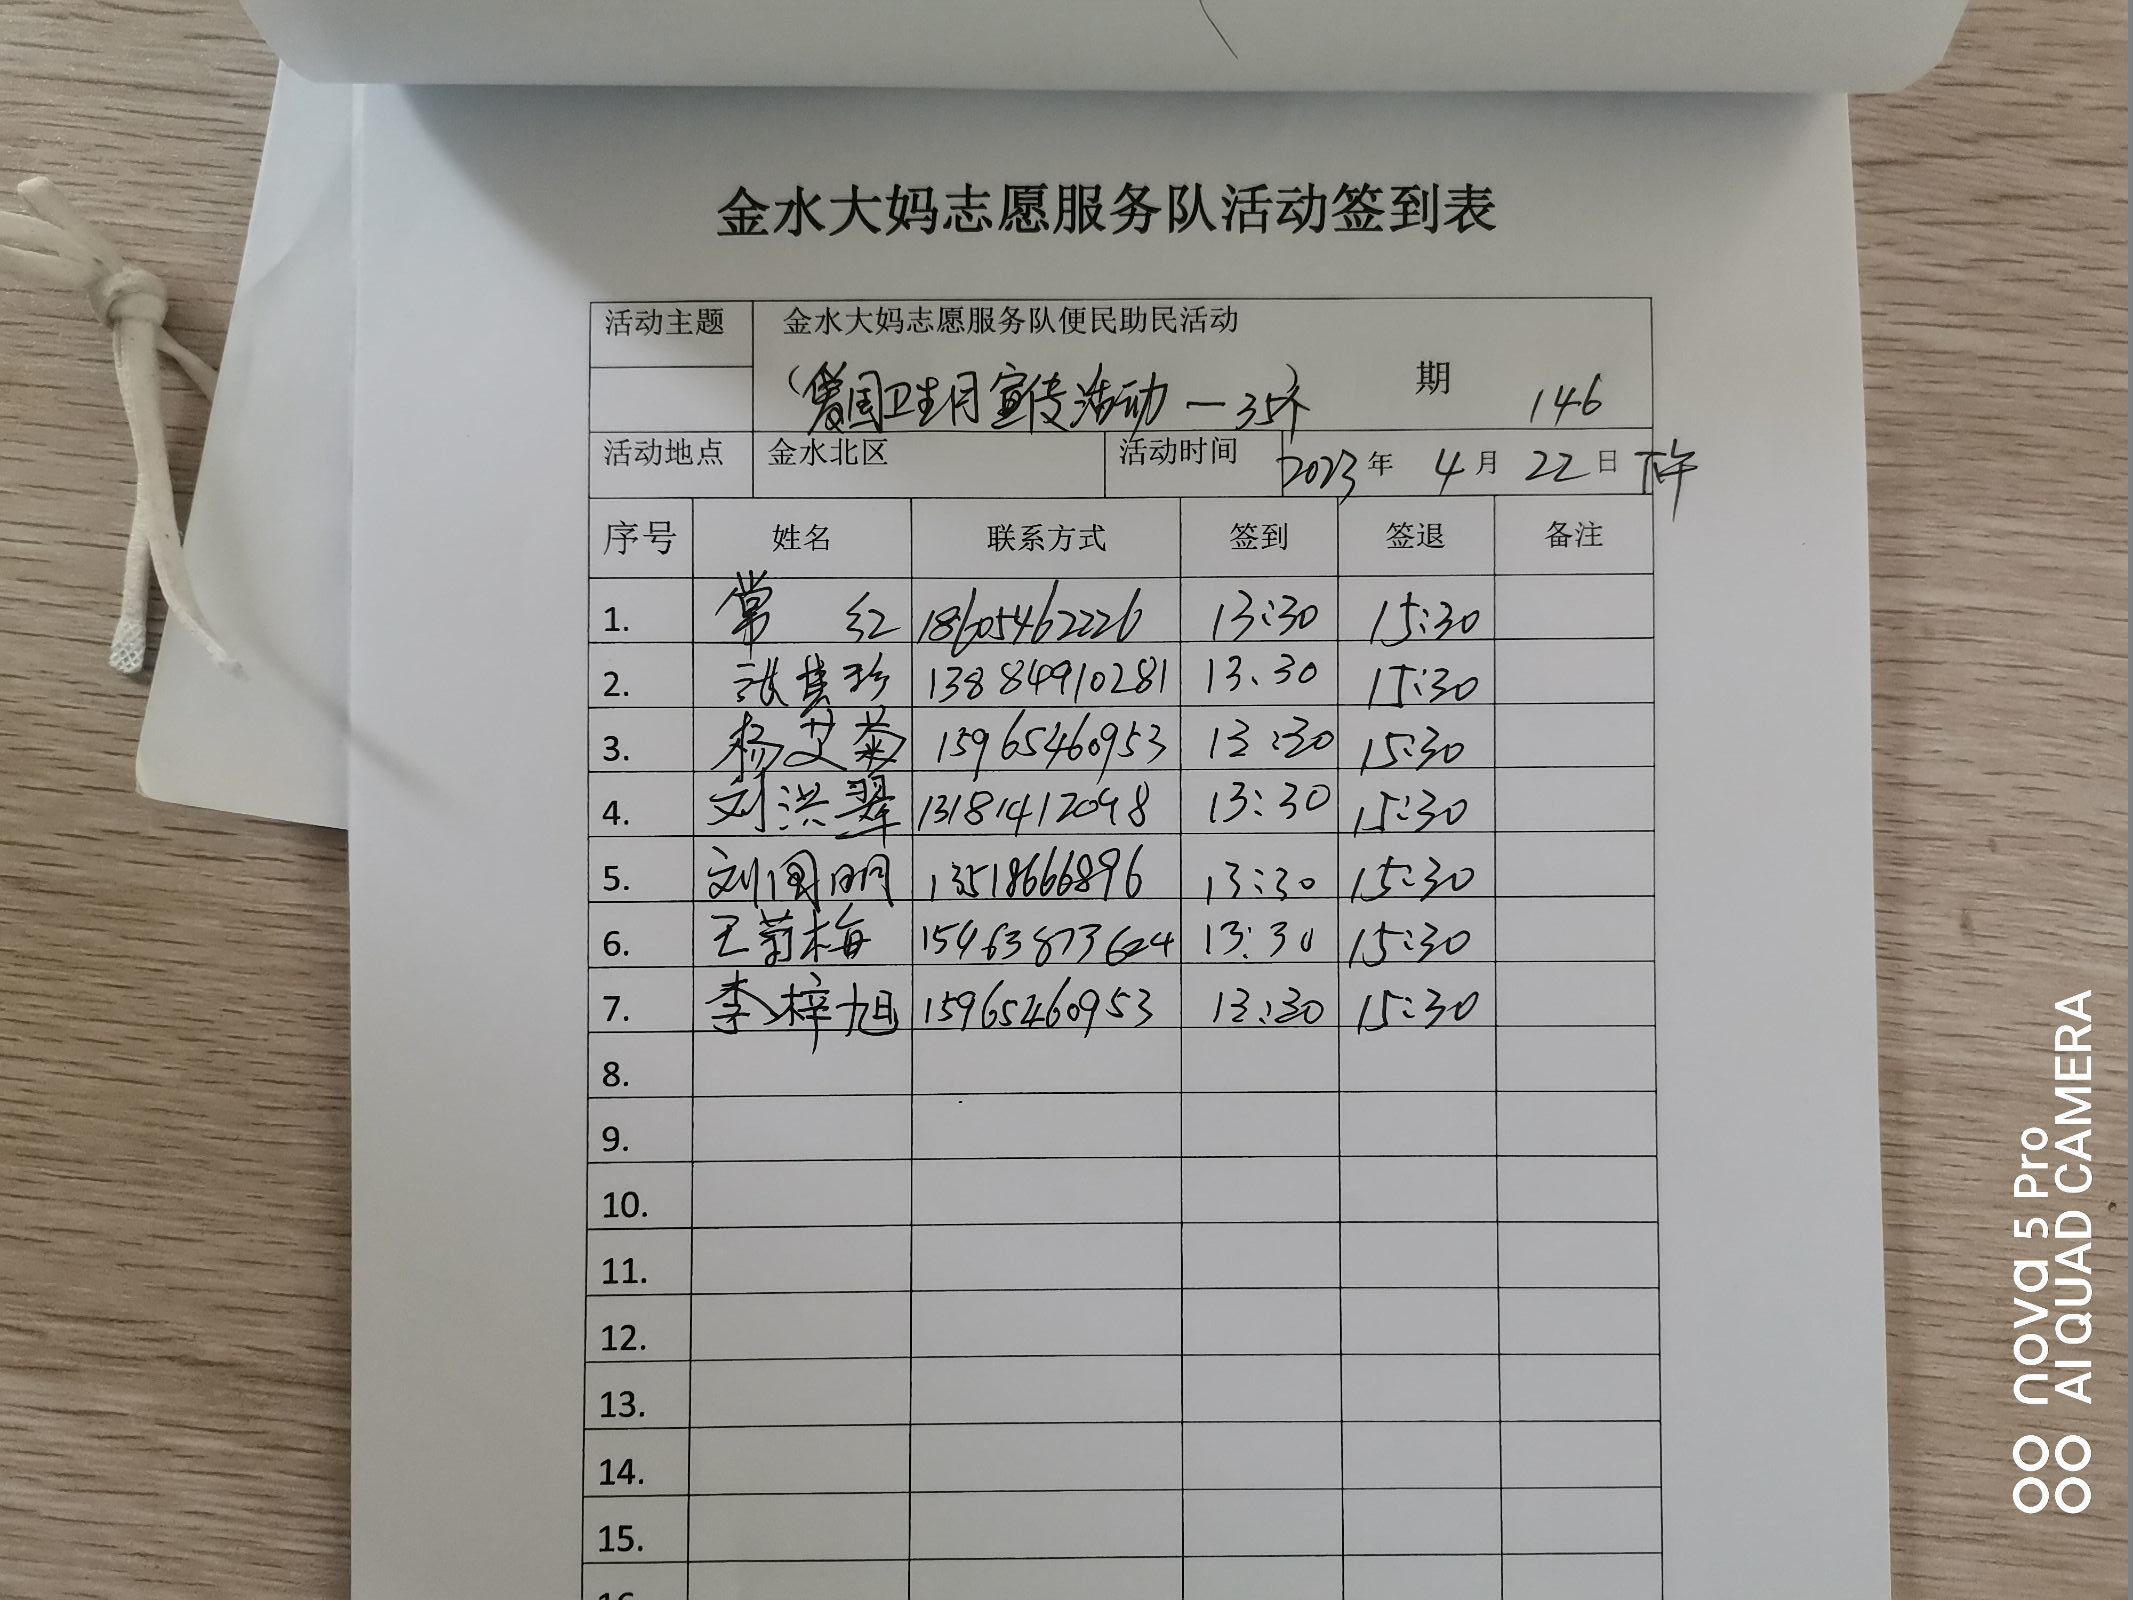 金水大妈志愿服务队活动签到表
活动主题 金水大妈志愿服务队便民助民活动
（爱国卫生月宣传活动一35个） 期 146
活动地点 金水北区 活动时间 2023年 4月 22日 下午
序号 姓名 联系方式 签到 签退 备注
1. 常红 18605462226 13:30 15:30
2. 张其珍 13884910281 13.30 15:30
3. 杨艾菊 15965460953 13:30 15:30
4. 刘洪翠 13181412098 13:30 15:30
5. 刘国明 13518666896 13:30 15:30
6. 王菊梅 15963873624 13:30 15:30
7. 李梓旭 15965460953 13:30 15:30
8.
9.
10.
11.
12.
13.
14.
15.
nova 5 Pro
AI QUAD CAMERA